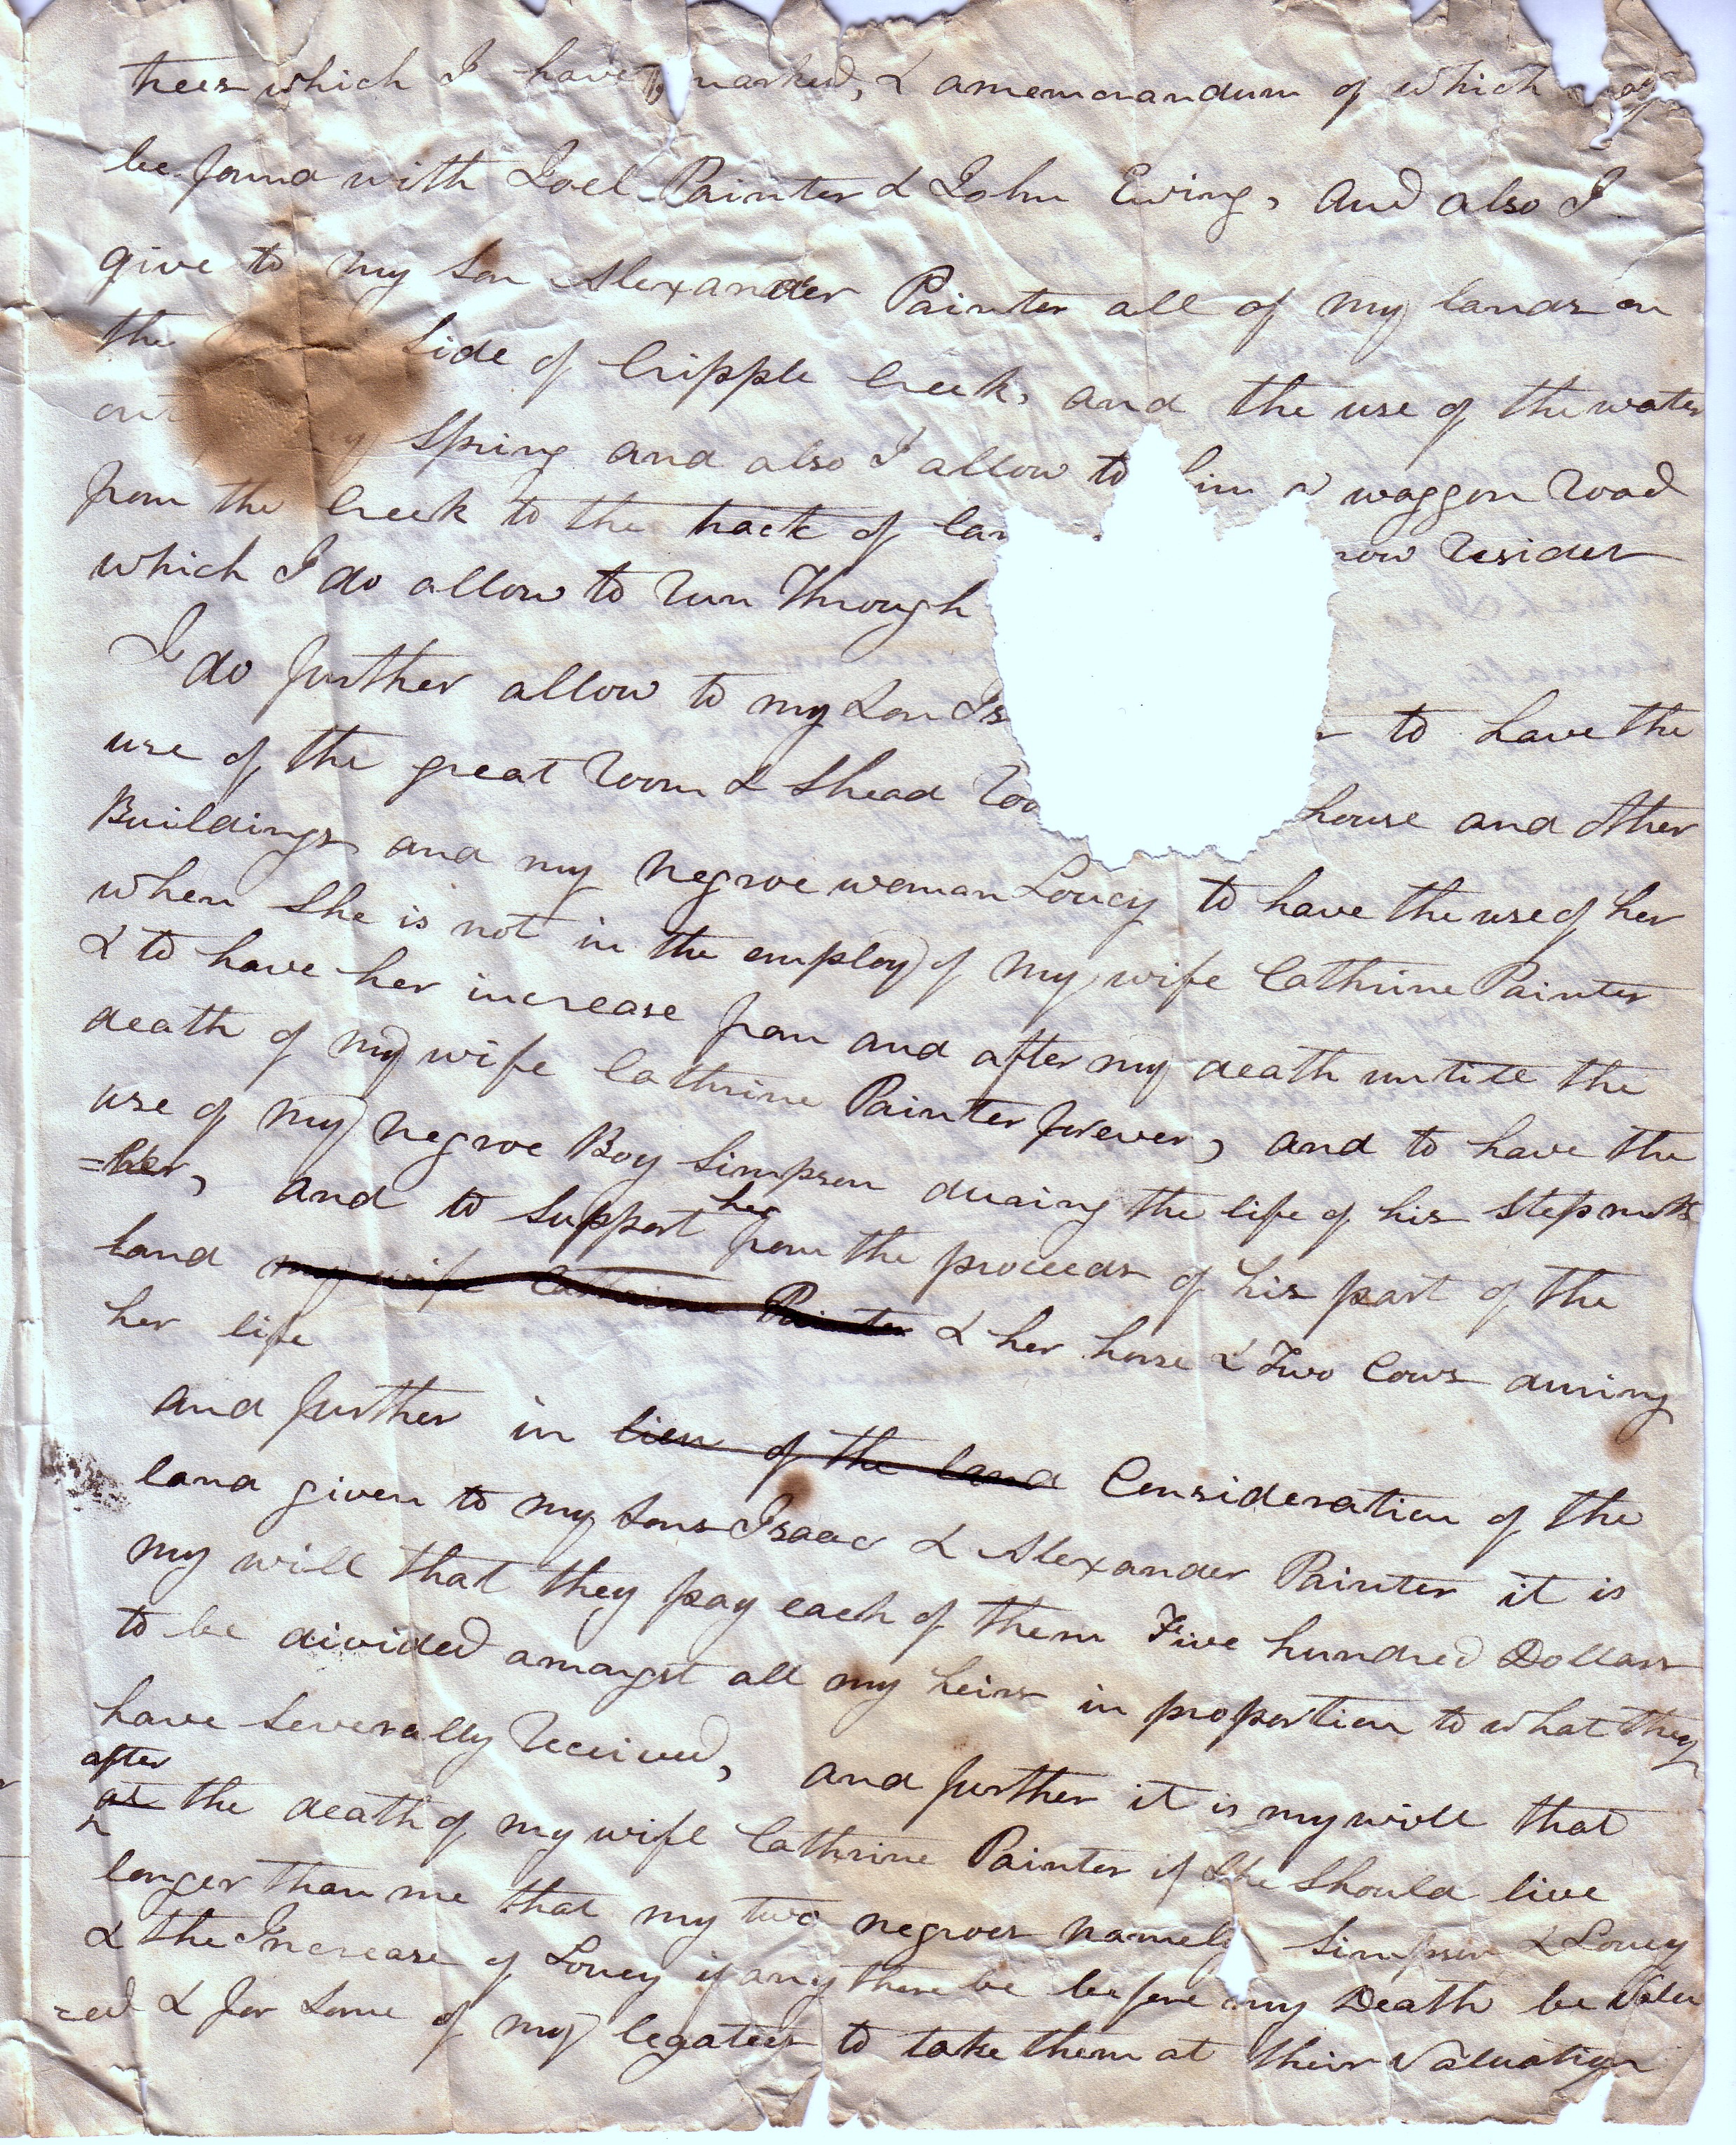 trees which I have marked, & a memorandum of which
be found with Joel Painter & John Ewing, And also I
give to my Son Alexander Painter all of my lands on
the side of Cripple Creek, and the use of the water
out Spring and also I allow to him a waggon Road
from the Creek to the track of lan now Resides
which I do allow to Run Through
I do further allow to my Son Is to have the
use of the great Room & Shead Roo house and other
Buildings and my Negroe woman Loucy to have the use of her
when She is not in the employ of my wife Cathrine Painter
& to have her increase from and after my death untill the
death of my wife Cathrine Painter forever, and to have the
use of my Negroe Boy Simpson during the life of his Stepmoth
=her, and to Support her from the proceeds of his part of the
land my wife Cathrine Painter & her horse & Two Cows during
her life
and further in lieu of the land Consideration of the
land given to my Sons Isaac & Alexander Painter it is
my will that they pay each of them Five hundred Dollars
to be divided amongst all my heirs in proportion to what they
have Severally Received, and further it is my will that
after
at the death of my wife Cathrine Painter if She Should live
longer than me that my two negroes namely Simpson & Loucy
& the Increase of Loucy if any there be before my Death be Valu
=ed & for Some of my legatees to take them at their Valuation